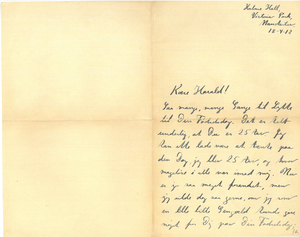 Hulme Hall,
Victoria Park,
Manchester
18-4-12
Kære Harald!
Saa mange, mange Gange til Lykke
til Din Fødselsdag. Det er helt
underligt, at Du er 25 Aar. Jeg
kan ikke lade være at tænke paa
den Dag, jeg blev 25 Aar, og hvor
I alle var imod mig. Nu
er jo saa meget forandret, men
jeg vilde dog saa gerne, om jeg
en lille bitte Gengæld kunde gøre
noget for Dig paa Din Fødselsdag,